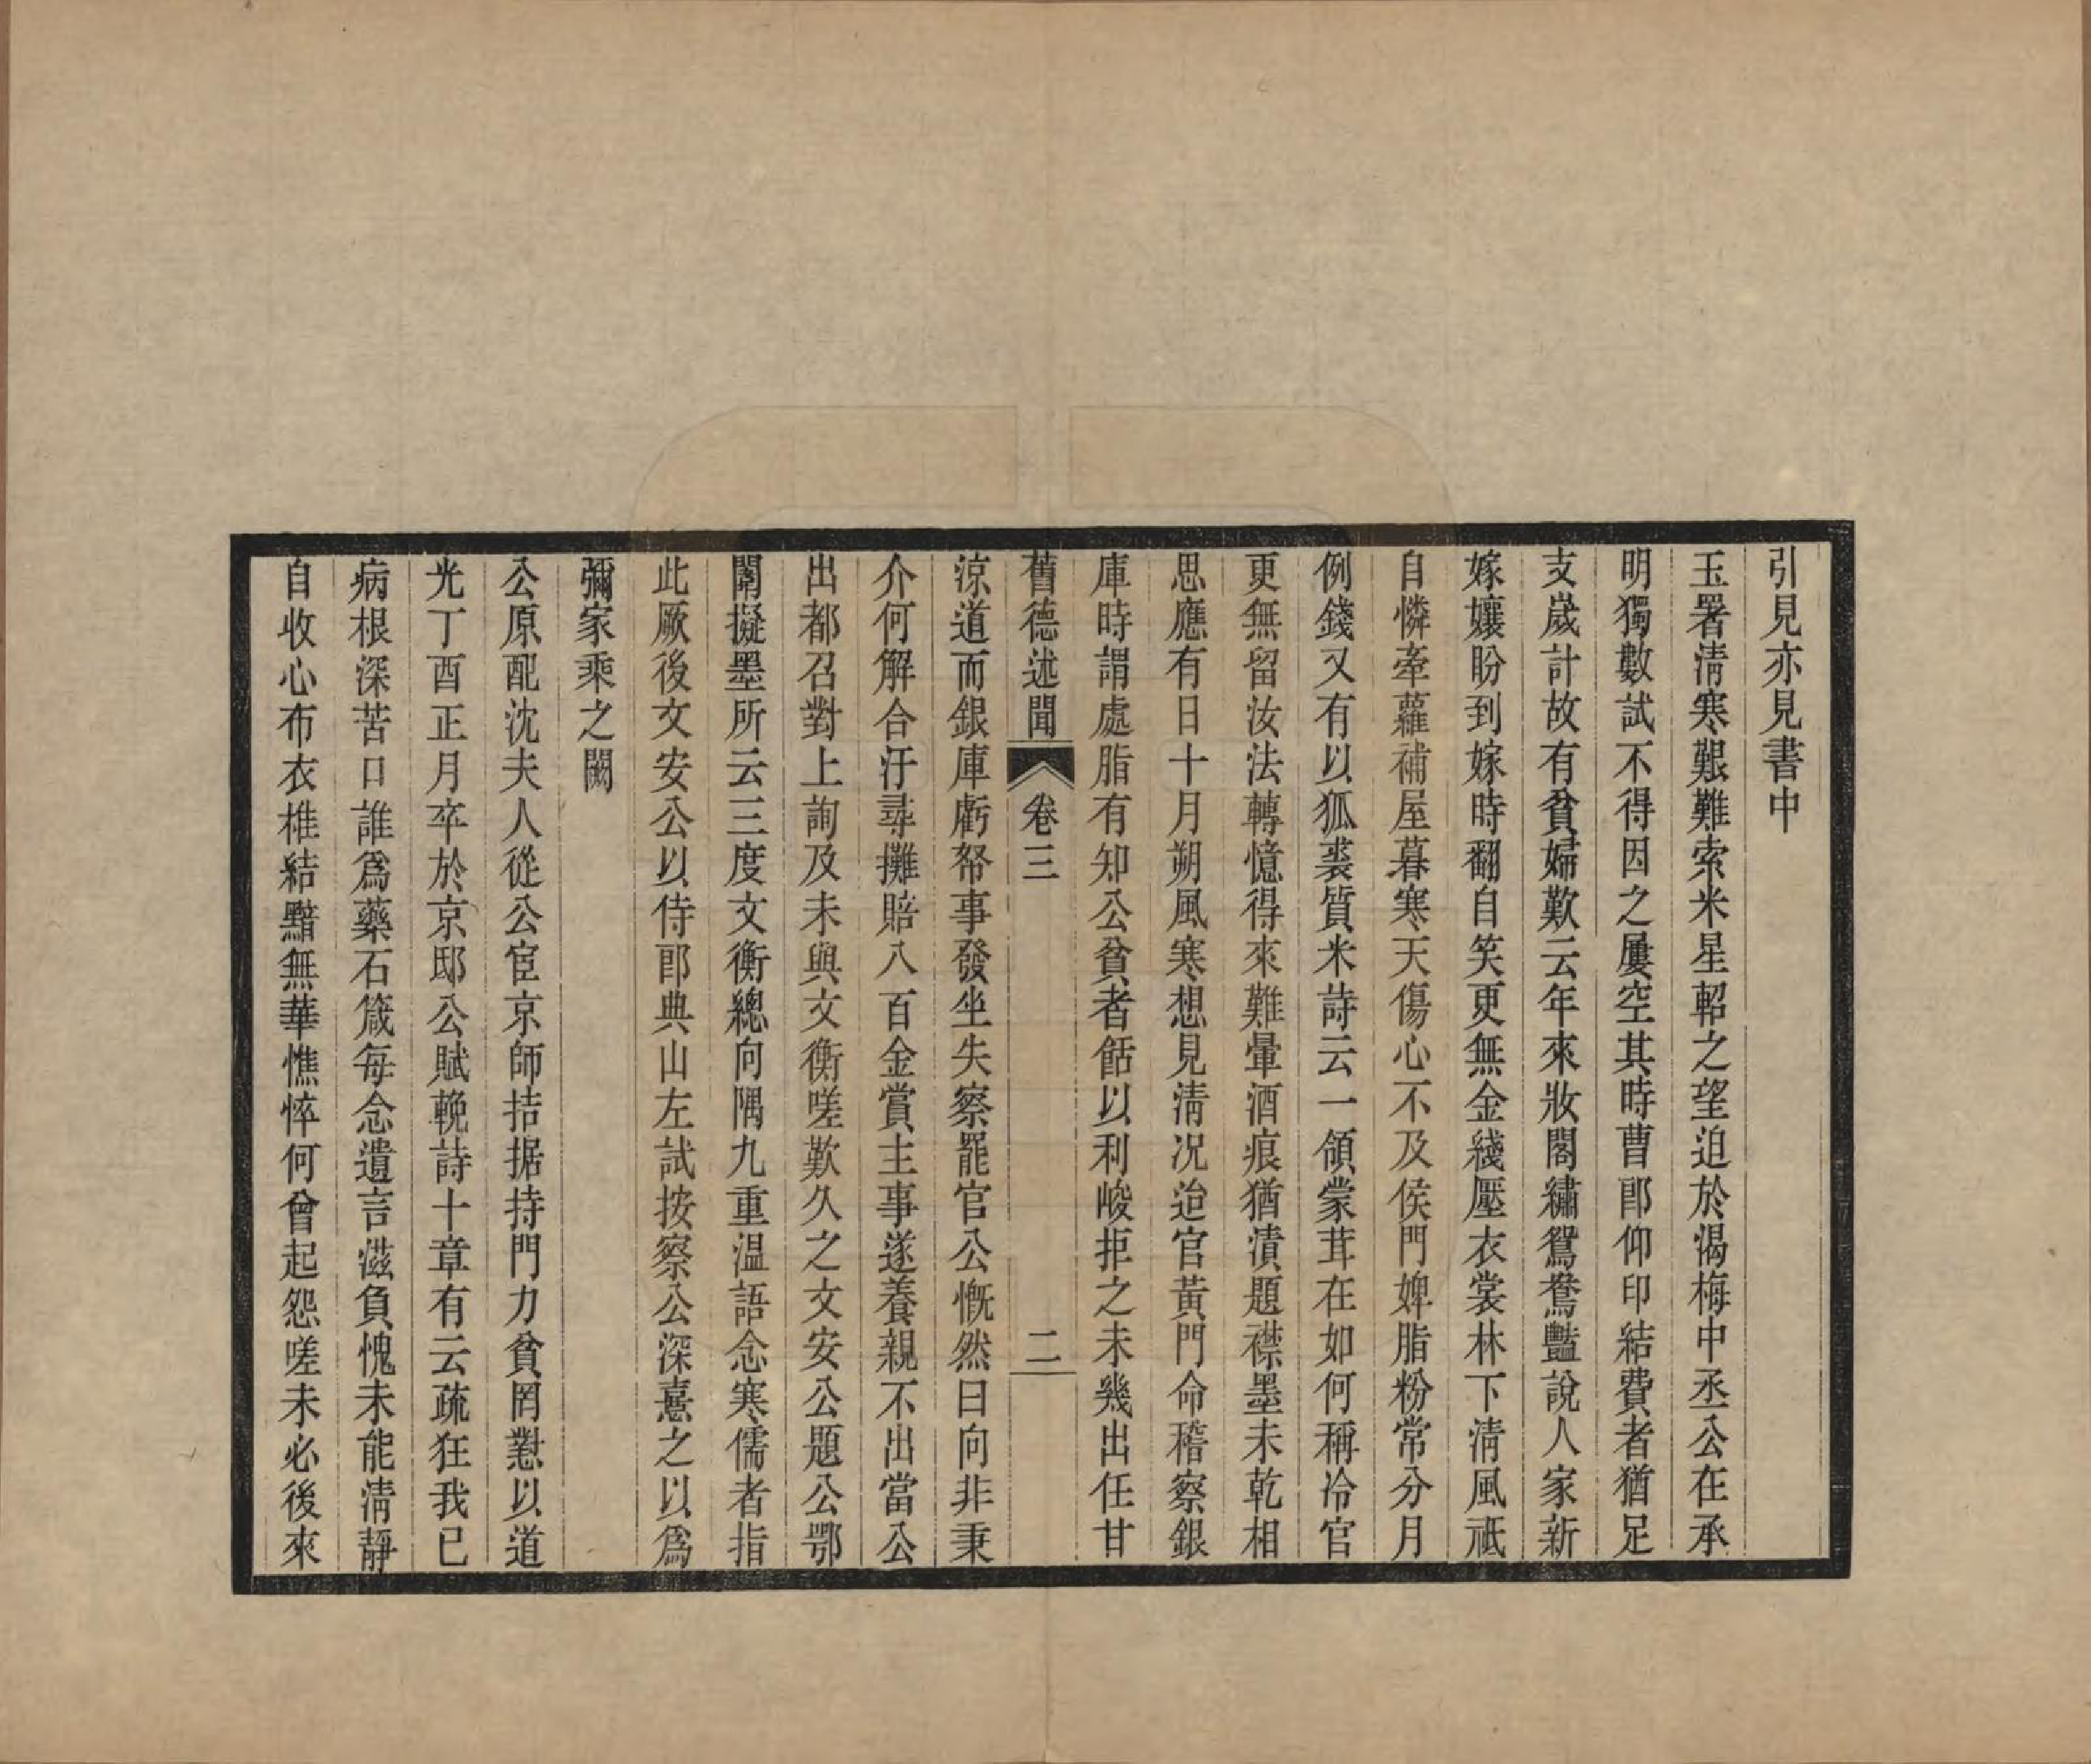 引見亦見書中
玉署清寒艱難索米星軺之望迫於渴梅中丞公在承
明獨數試不得因之屢空其時曹郎仰印結費者猶足
支歲計故有貧婦歎云年來妝閣繡鴛鴦豔說人家新
嫁孃盼到嫁時翻自笑更無金綫壓衣裳林下清風祗
自憐牽蘿補屋暮寒天傷心不及侯門婢脂粉常分月
例錢又有以狐裘質米詩云一領蒙茸在如何稱冷官
更無留汝法轉憶得來難暈酒痕猶漬題襟墨未乾相
思應有日十月朔風寒想見清况迨官黃門命稽察銀
庫時謂處脂有知公貧者餂以利峻拒之未幾出任甘
舊德述聞 卷三 二
涼道而銀庫虧帑事發坐失察罷官公慨然曰向非秉
介何解合汙尋攤賠八百金賞主事遂養親不出當公
出都召對上詢及未與文衡嗟歎久之文安公題公鄂
闈擬墨所云三度文衡總向隅九重温語念寒儒者指
此厥後文安公以侍郎典山左試按察公深憙之以爲
彌家乘之闕
公原配沈夫人從公宦京師拮据持門力貧罔懟以道
光丁酉正月卒於京邸公賦輓詩十章有云疏狂我已
病根深苦口誰爲藥石箴每念遺言滋負愧未能清靜
自收心布衣椎結黯無華憔悴何曾起怨嗟未必後來